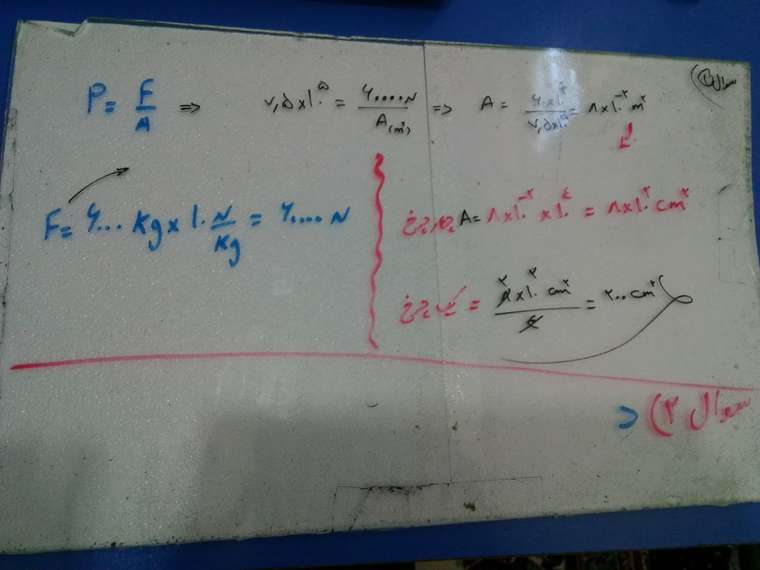 سوال ۱)
P = F/A ⇒ ۷,۵×۱۰^۵ = ۶۰۰۰۰N/A(m²) ⇒ A = ۶×۱۰^۴/۷,۵×۱۰^۵ = ۸×۱۰^-۲ m²
F = ۶۰۰۰ kg × ۱۰ N/kg = ۶۰۰۰۰ N
چهار چرخ A = ۸×۱۰^-۲ × ۱۰^۴ = ۸×۱۰^۲ cm²
یک چرخ = ۸×۱۰^۲ cm²/۴ = ۲۰۰ cm²
سوال ۲) د